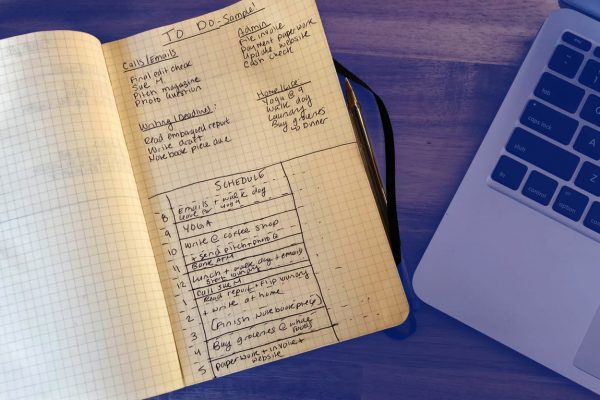 TO DO - Sample!
Calls/Emails
Final edit check
Sue M.
Pitch magazine
Photo question
Admin
File invoice
Payment paperwork
Update website
Cash check
Writing/Deadlines:
Read embargoed report
Write draft
Notebook piece due
Home/Life
Yoga @ 9
Walk dog
Laundry
Buy groceries
Dinner
SCHEDULE
8 Emails + walk dog
leave for yoga
9 YOGA
10 Write @ coffee shop
+ send pitch + photo Q
11 Bank ATM
12 Lunch + walk dog + email
start laundry
Call Sue M
1 Read report + flip laundry
2 + write at home
3 (Finish notebook prep)
4 Buy groceries @ whole
foods
5 paperwork + invoice +
website
caps lock
shift
control
option
A
Z